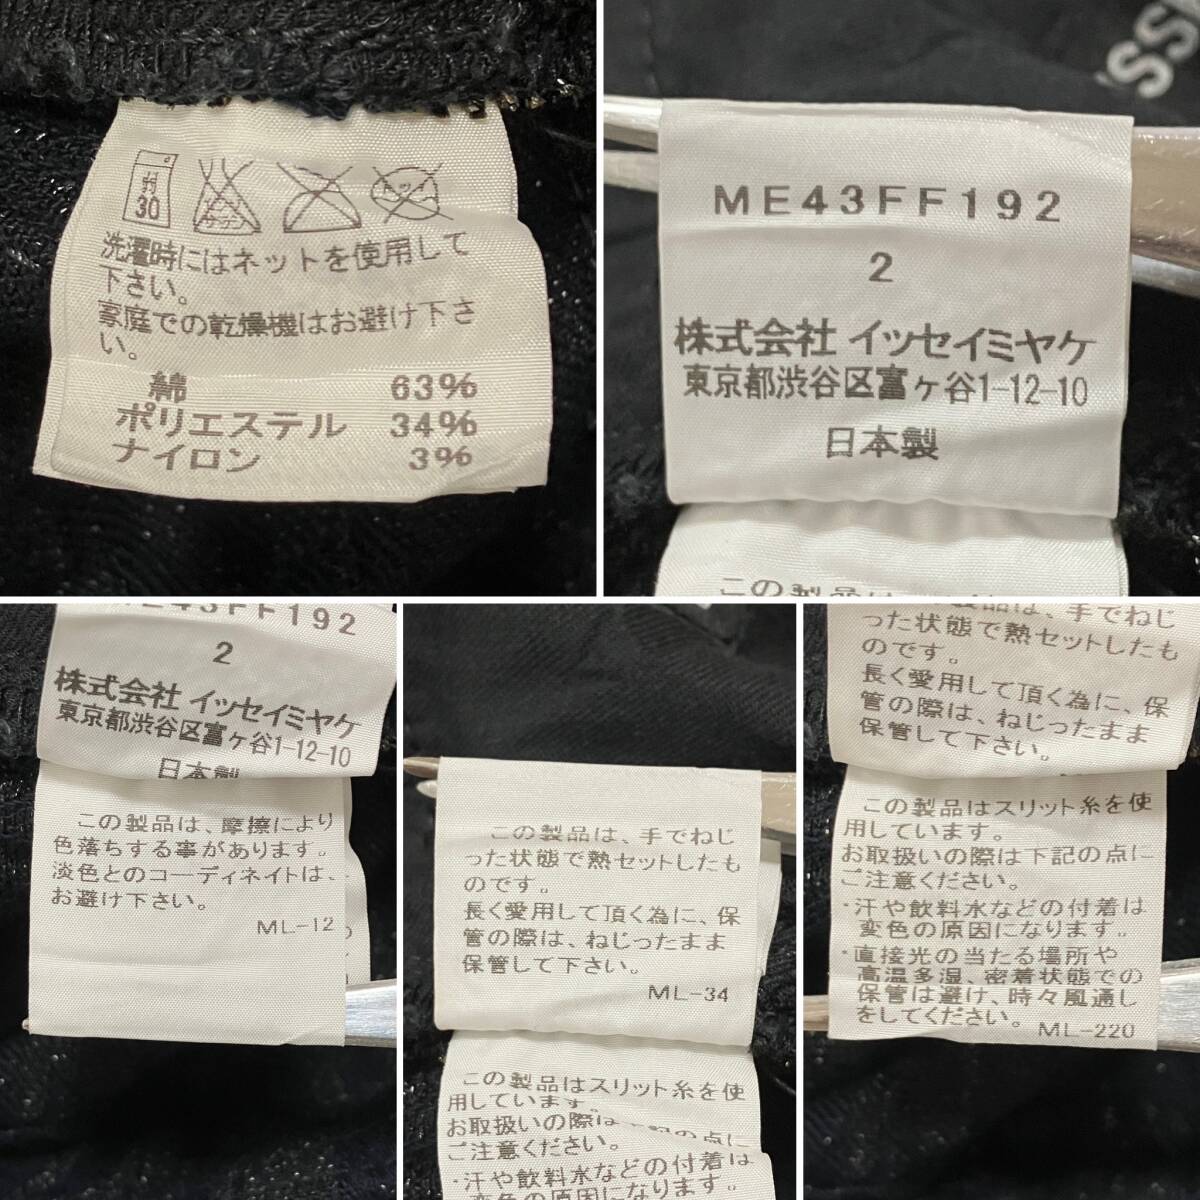 弱
30
洗濯時にはネットを使用して
下さい。
家庭での乾燥機はお避け下さ
い。
綿 63%
ポリエステル 34%
ナイロン 3%
SS
ME43FF192
2
株式会社 イッセイミヤケ
東京都渋谷区富ヶ谷1-12-10
日本製
この製品は、
ME43FF192
2
株式会社 イッセイミヤケ
東京都渋谷区富ヶ谷1-12-10
日本製
この製品は、摩擦により
色落ちする事があります。
淡色とのコーディネイトは、
お避け下さい。
ML-12
この製品は、手でねじ
った状態で熱セットしたも
のです。
長く愛用して頂く為に、保
管の際は、ねじったまま
保管して下さい。
ML-34
この製品はスリット糸を使
用しています。
お取扱いの際は下記の点に
ご注意ください。
・汗や飲料水などの付着は
変色の原因になります。
製品は、手でねじ
った状態で熱セットしたも
のです。
長く愛用して頂く為に、保
管の際は、ねじったまま
保管して下さい。
この製品はスリット糸を使
用しています。
お取扱いの際は下記の点に
ご注意ください。
・汗や飲料水などの付着は
変色の原因になります。
・直接光の当たる場所や
高温多湿、密着状態での
保管は避け、時々風通し
をしてください。 ML-220